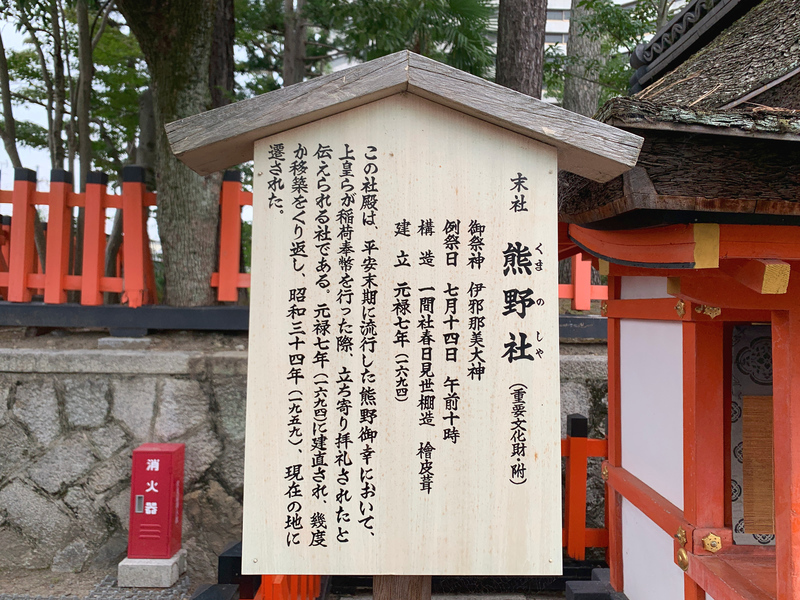 末社
熊野社（重要文化財・附）
くまのしゃ
御祭神 伊邪那美大神
例祭日 七月十四日 午前十時
構造 一間社春日見世棚造 檜皮葺
建立 元禄七年（一六九四）
この社殿は、平安末期に流行した熊野御幸において、
上皇らが稲荷奉幣を行った際、立ち寄り拝礼されたと
伝えられる社である。元禄七年（一六九四）に建直され、幾度
か移築をくり返し、昭和三十四年（一九五九）、現在の地に
遷された。
消火器